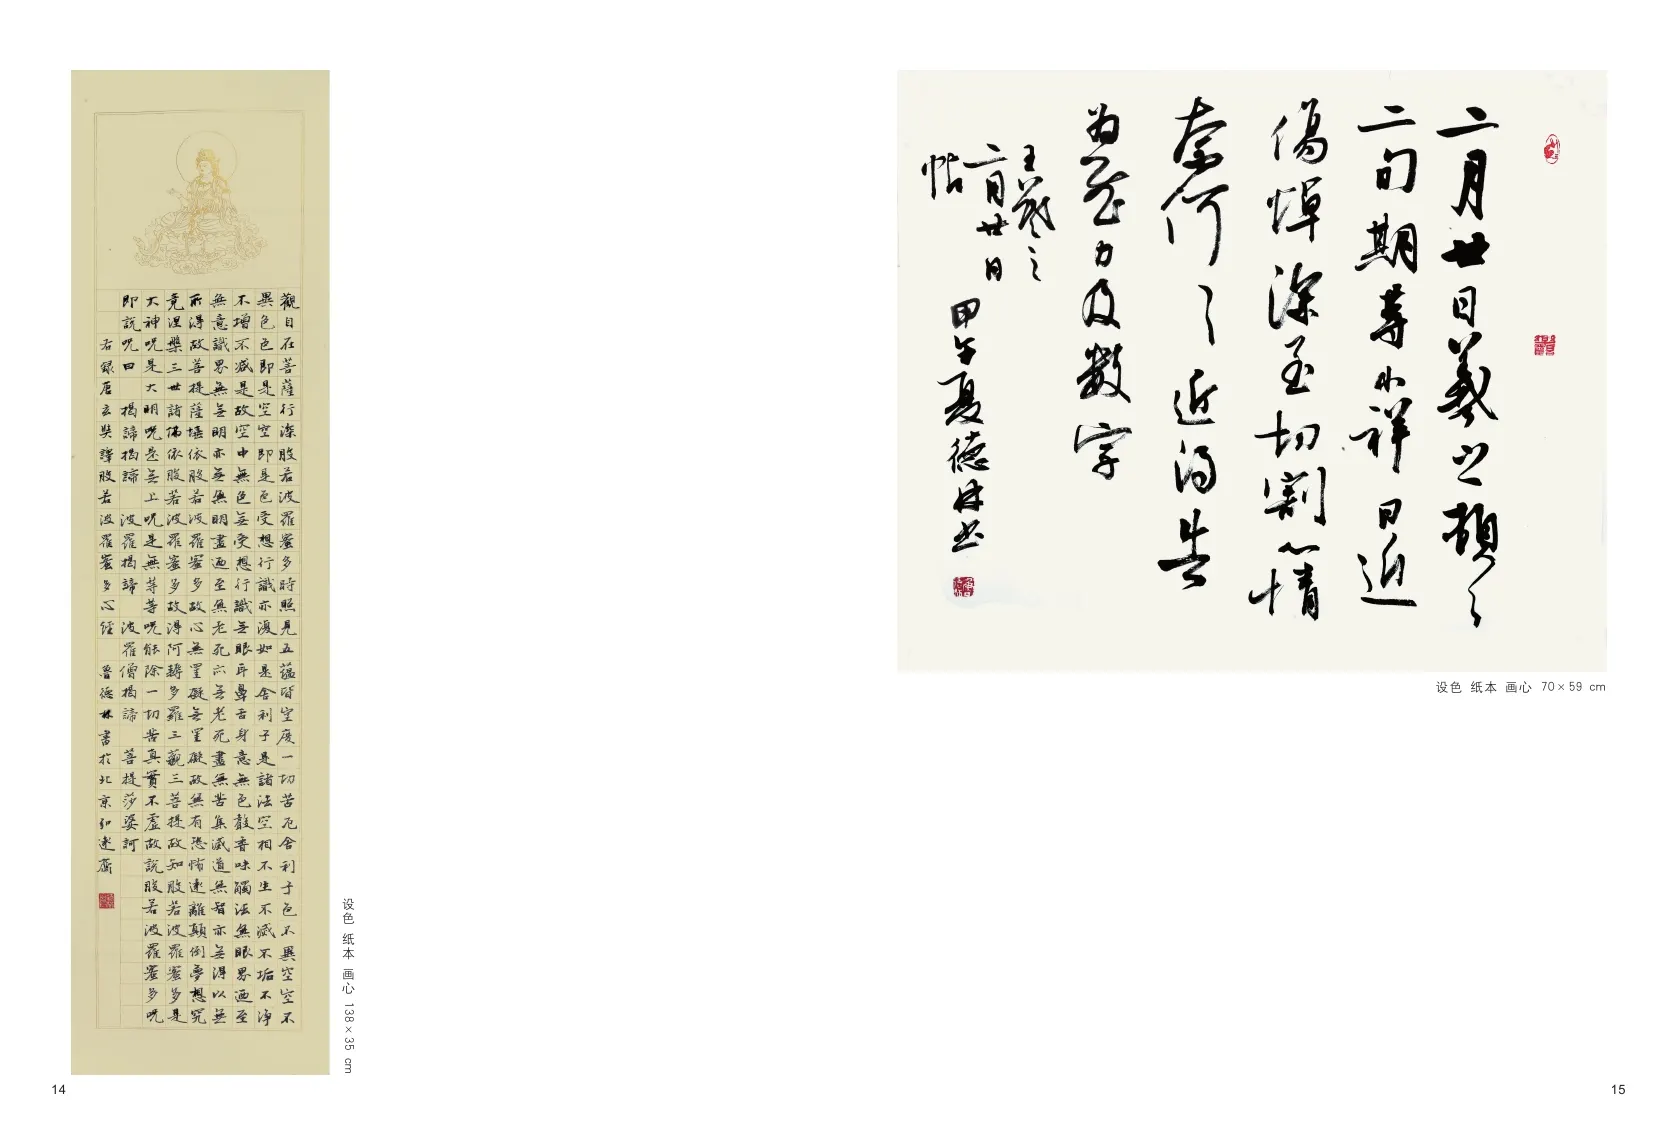 觀自在菩薩行深般若波羅蜜多時照見五蘊皆空度一切苦厄舍利子色不異空空不
異色色即是空空即是色受想行識亦復如是舍利子是諸法空相不生不滅不垢不淨
不增不減是故空中無色无受想行識无眼耳鼻舌身意無色聲香味觸法無眼界迺至
無意識界無无明亦无無明盡迺至無老死亦无老死盡無苦集滅道無智亦无得以無
所得故菩提薩埵依般若波羅蜜多故心無罣礙无罣礙故無有恐怖遠離顛倒夢想究
竟涅槃三世諸佛依般若波羅蜜多故得阿耨多羅三藐三菩提故知般若波羅蜜多是
大神呪是大明呪是无上呪是無等等呪能除一切苦真實不虛故說般若波羅蜜多呪
即說呪曰 揭諦揭諦 波羅揭諦 波羅僧揭諦 菩提莎婆訶
右錄唐玄奘譯般若波羅蜜多心經 魯德林書於北京弘遠齋
设色 纸本 画心 138×35 cm
14
二月廿日羲之頓〻
二旬期等小祥日近
傷悼深至切割心情
奈何〻近得告
为慰力及数字
王羲之
二月廿日
帖
甲午夏德林书
设色 纸本 画心 70×59 cm
15